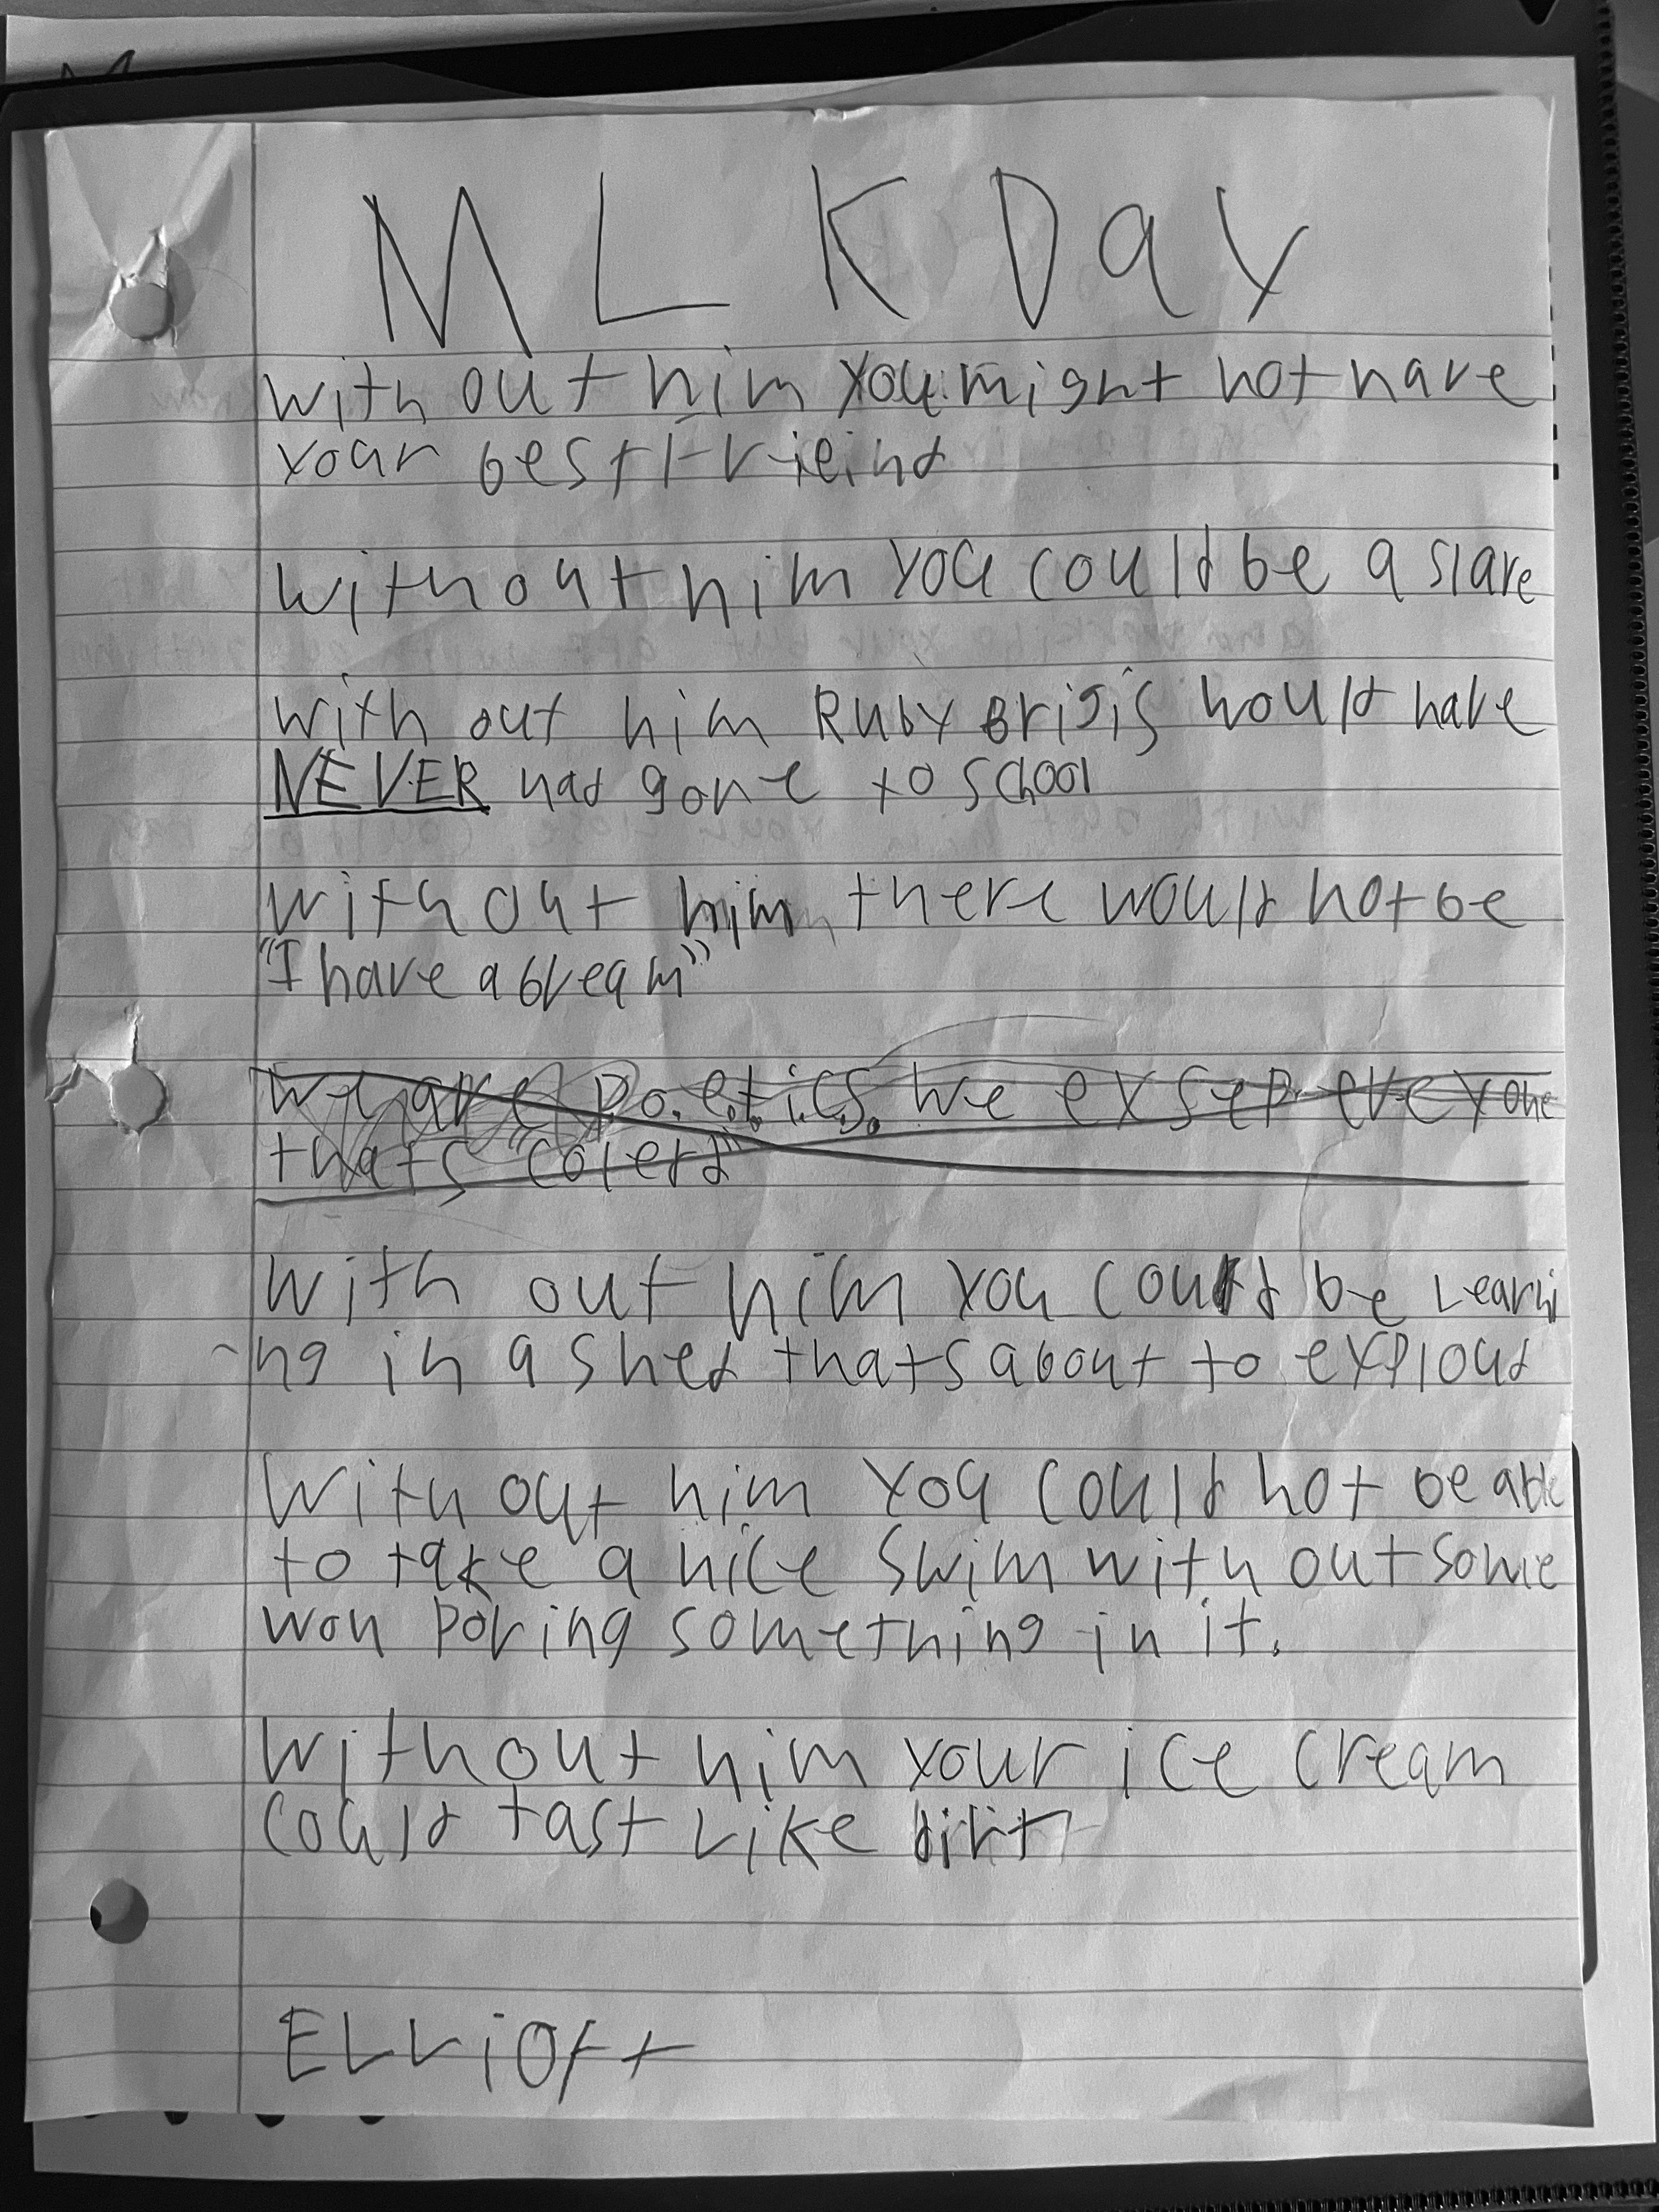 MLK Day
with out him you might not have
your best frieind
without him you could be a slave
with out him Ruby Brigis would have
NEVER had gone to school
with out him there would not be
"I have a bream"
we are p.o.e.t.i.c.s. we exsep everyone
thats "colerd"
with out him you could be Learni
ng in a shed thats about to exploud
with out him you could not be able
to take a nice swim with out some
won poring something in it.
without him your ice cream
could tast Like dirt
ELLiott